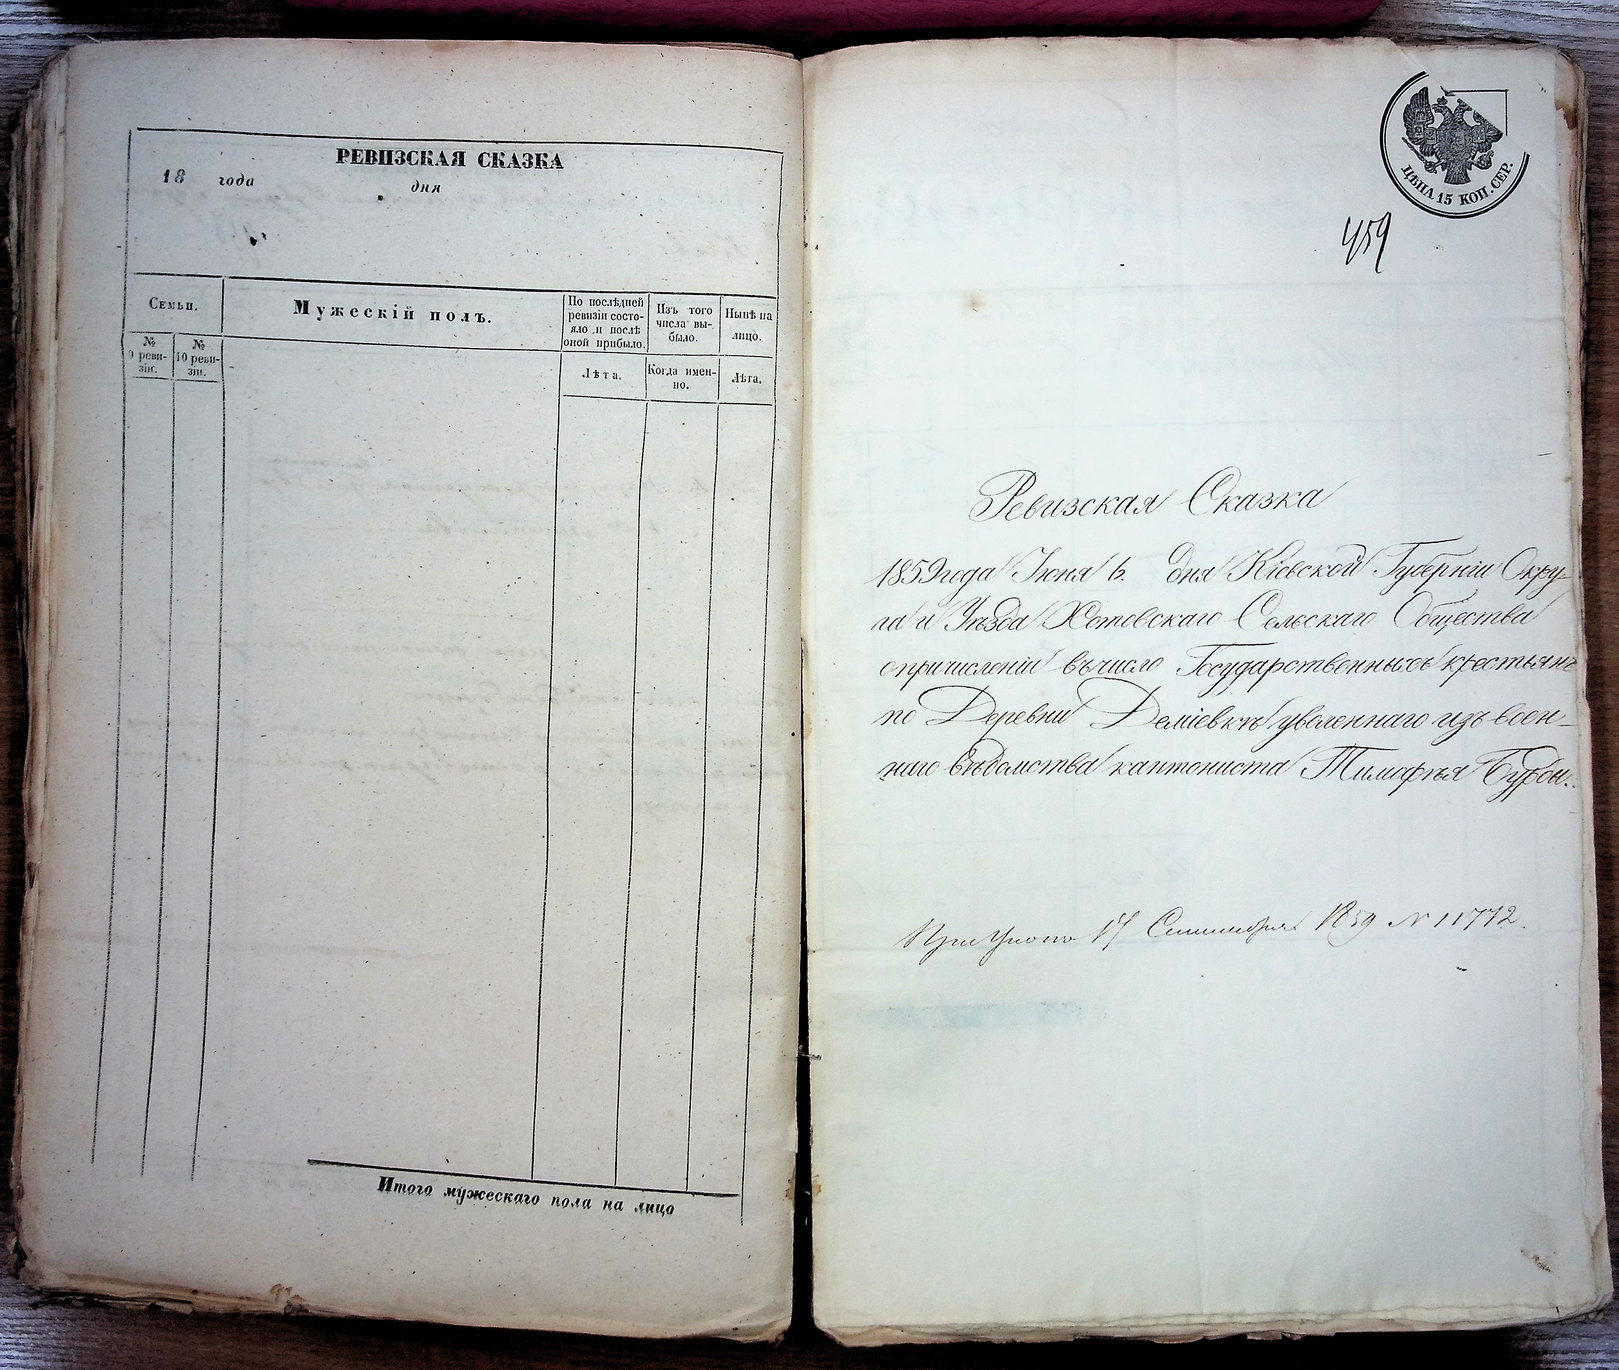 РЕВИЗСКАЯ СКАЗКА
18 года дня
Семьи.
№ 9 реви-
зіи.
№ 10 реви-
зіи.
Мужескій полъ.
По послѣдней
ревизіи состо-
яло и послѣ
оной прибыло.
Лѣта.
Изъ того
числа вы-
было.
Когда имен-
но.
Нынѣ на
лицо.
Лѣта.
Итого мужескаго пола на лицо
ЦѢНА 15 КОП. СЕР.
459
Ревизская Сказка
1859 года Іюня 6. дня Кіевской Губерніи Окру-
га и Уѣзда Хотовскаго Сельскаго Общества
о причисленіи въ число Государственныхъ крестьянъ
по Деревни Деміевкѣ уволеннаго изъ воен-
наго вѣдомства кантониста Тимофѣя Бурбы.
17 Сентября 1859 № 11772.